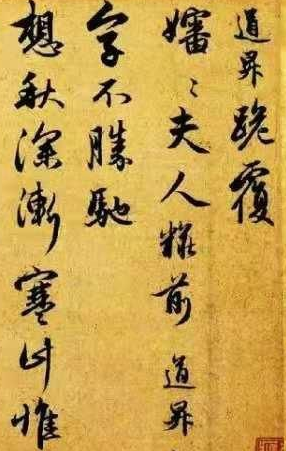 道昇跪覆
嬸〻夫人糚前道昇
字不勝馳
想秋深漸寒計惟